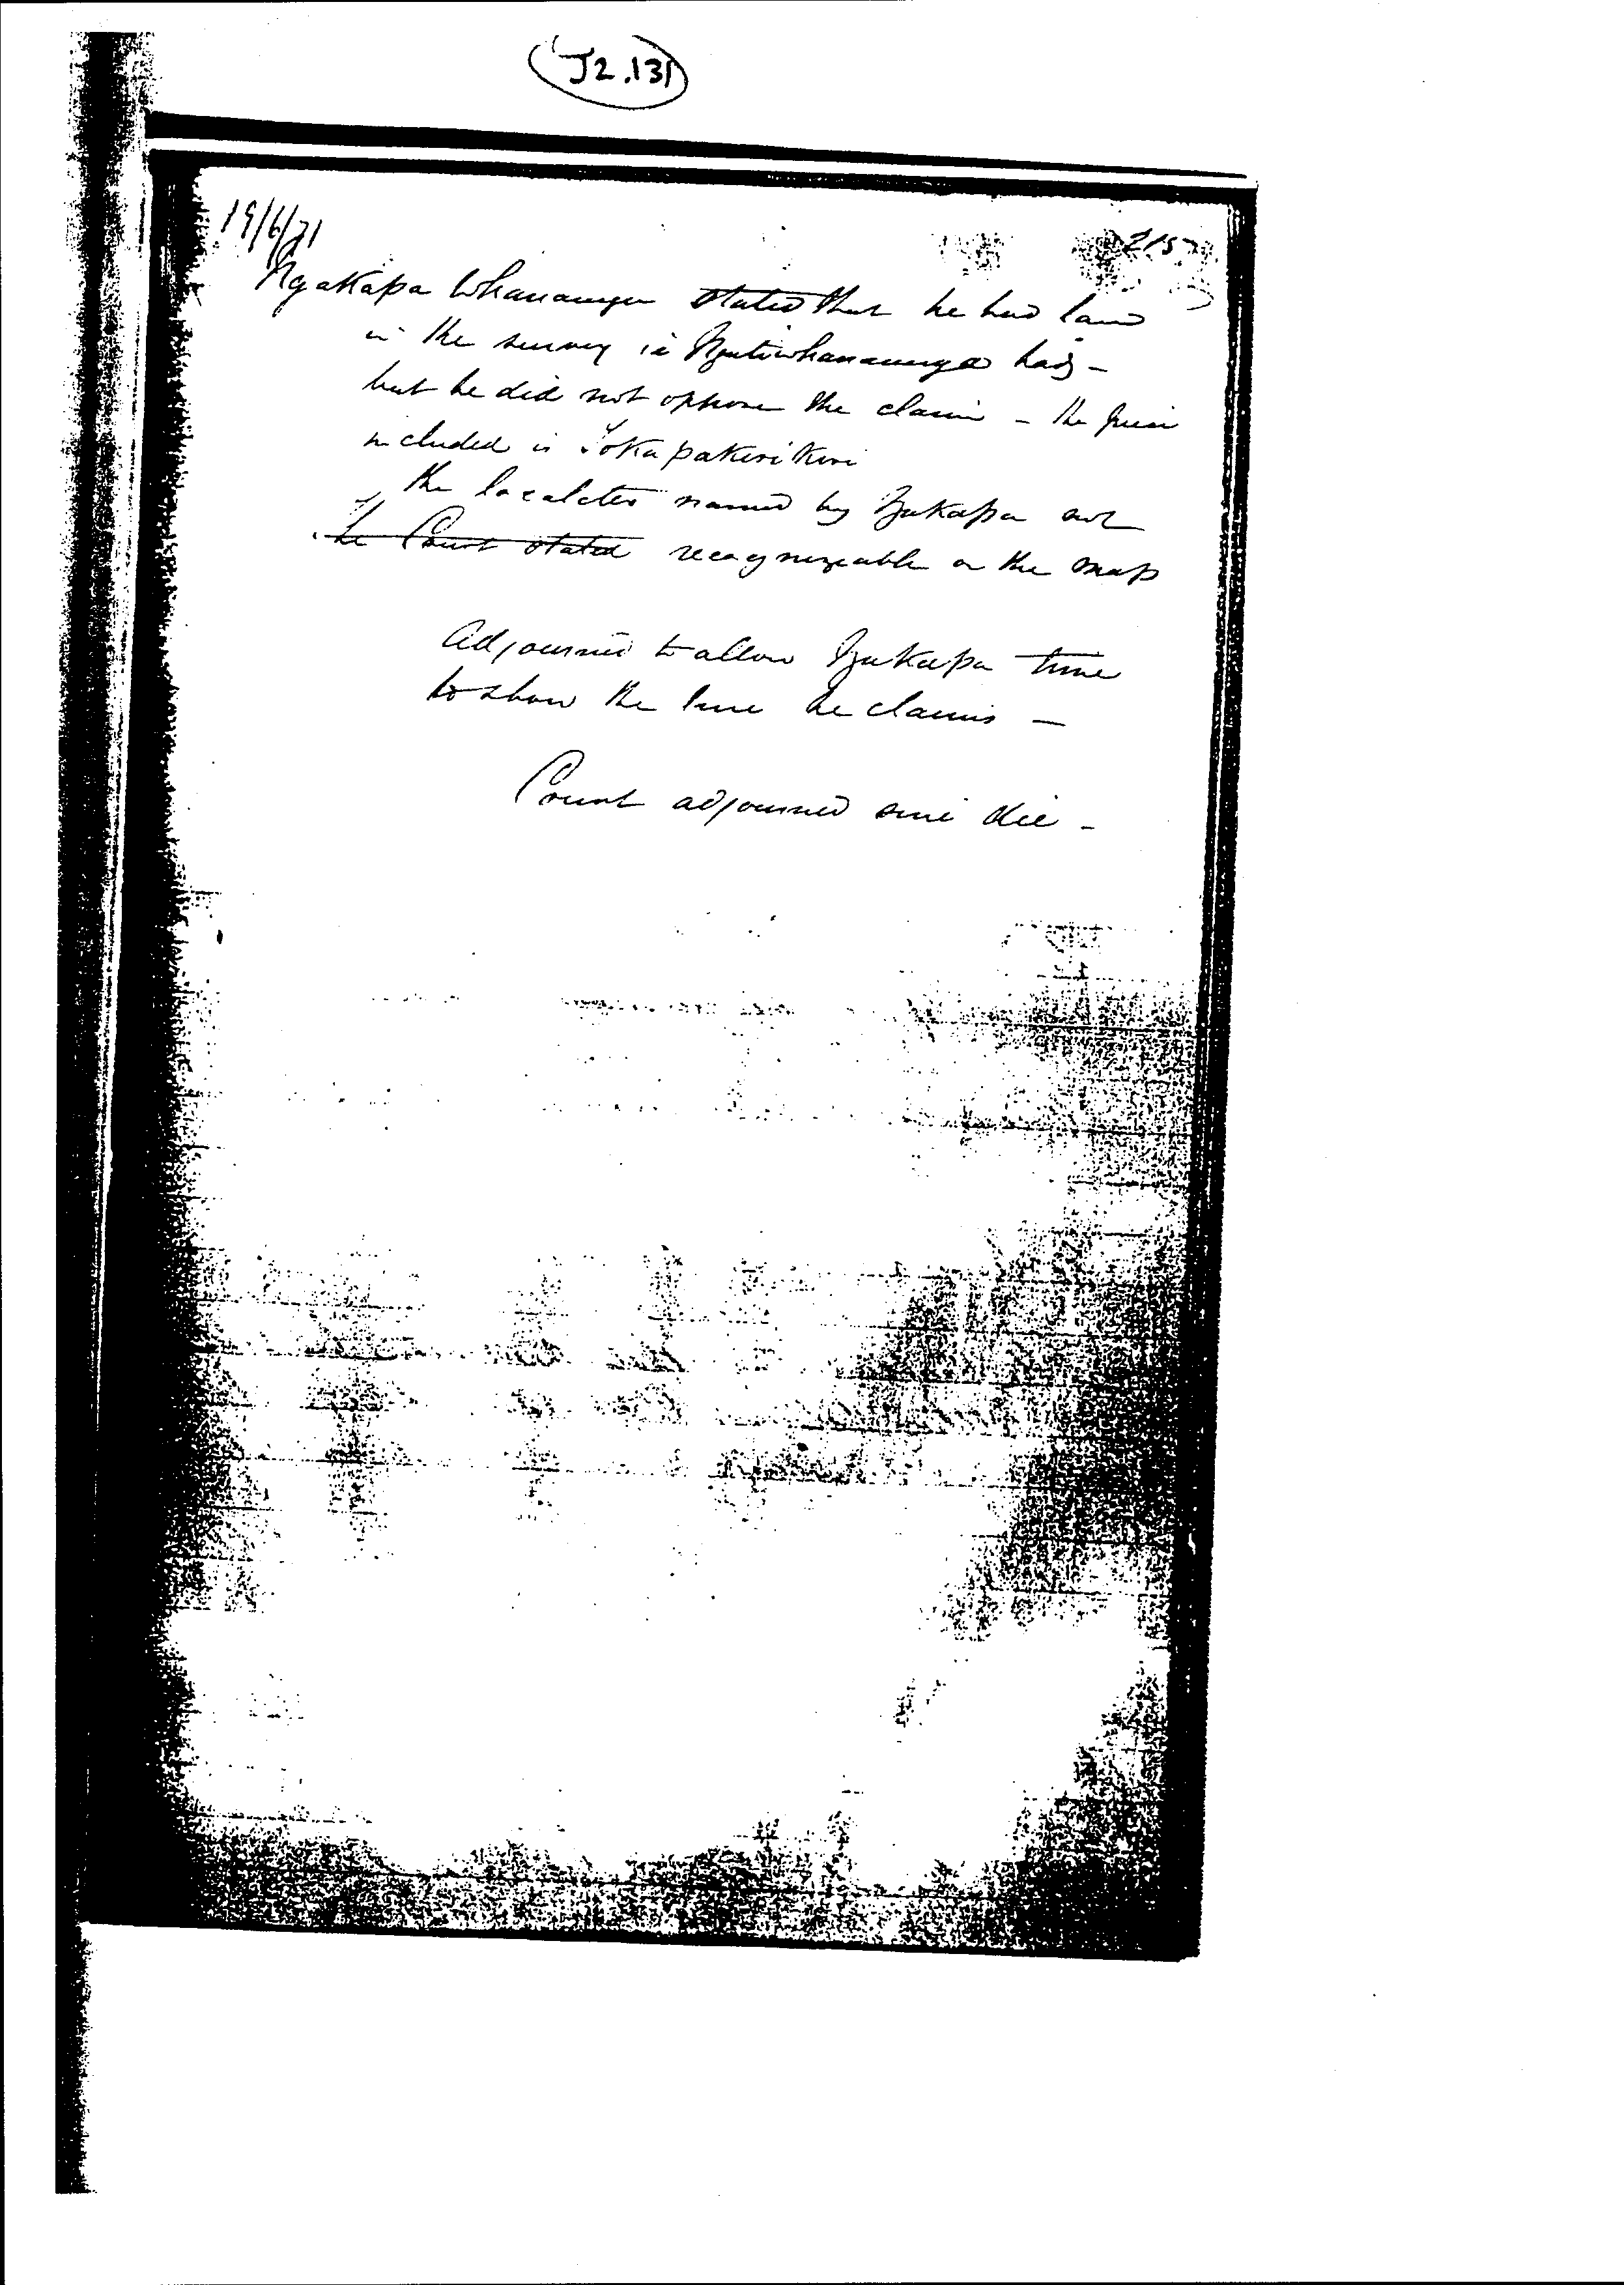 J2.131
19/6/71
215
Ngakapa Whanaunga stated that he had land
in the survey i.e Ngatiwhanaunga had –
but he did not oppose the claim – the piece
included is Tokapakirikiri
the localities named by Ngakapa not
the Court stated recognizeable on the map
Adjourned to allow Ngakapa time
to show the line he claims –
Court adjourned sine die –